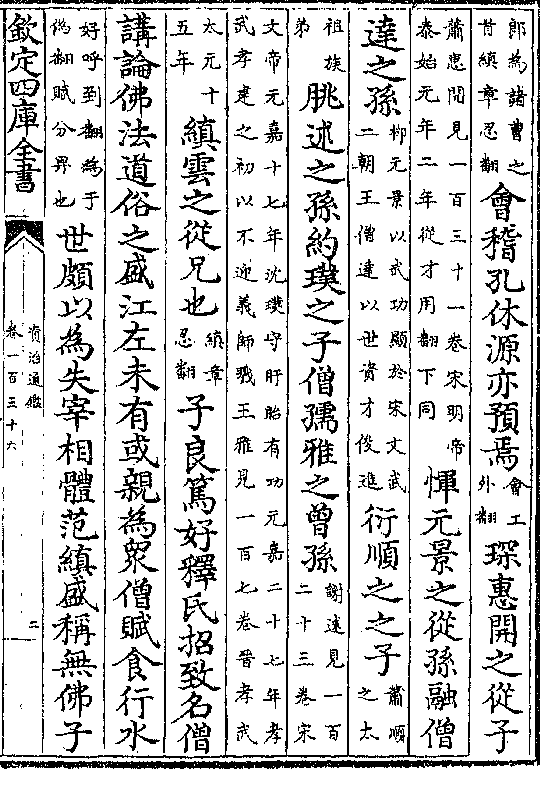 郎為諸曹之首縝章忍翻會稽孔休源亦預焉會工外翻琛惠開之從子
蕭惠開見一百三十一卷宋明帝泰始元年二年從才用翻下同惲元景之從孫融僧
達之孫柳元景以武功顯於宋文武二朝王僧達以世資才俊進衍順之之子蕭順之太
祖族弟朓述之孫約璞之子僧孺雅之曾孫謝述見一百二十三卷宋
文帝元嘉十七年沈璞守盱眙有功元嘉二十七年孝武孝建之初以不迎義師戮王雅見一百七卷晉孝武
太元十五年縝雲之從兄也縝章忍翻子良篤好釋氏招致名僧
講論佛法道俗之盛江左未有或親為衆僧賦食行水
好呼到翻為于偽翻賦分畀也世頗以為失宰相體范縝盛稱無佛子
欽定四庫全書
資治通鑑
卷一百三十六
二